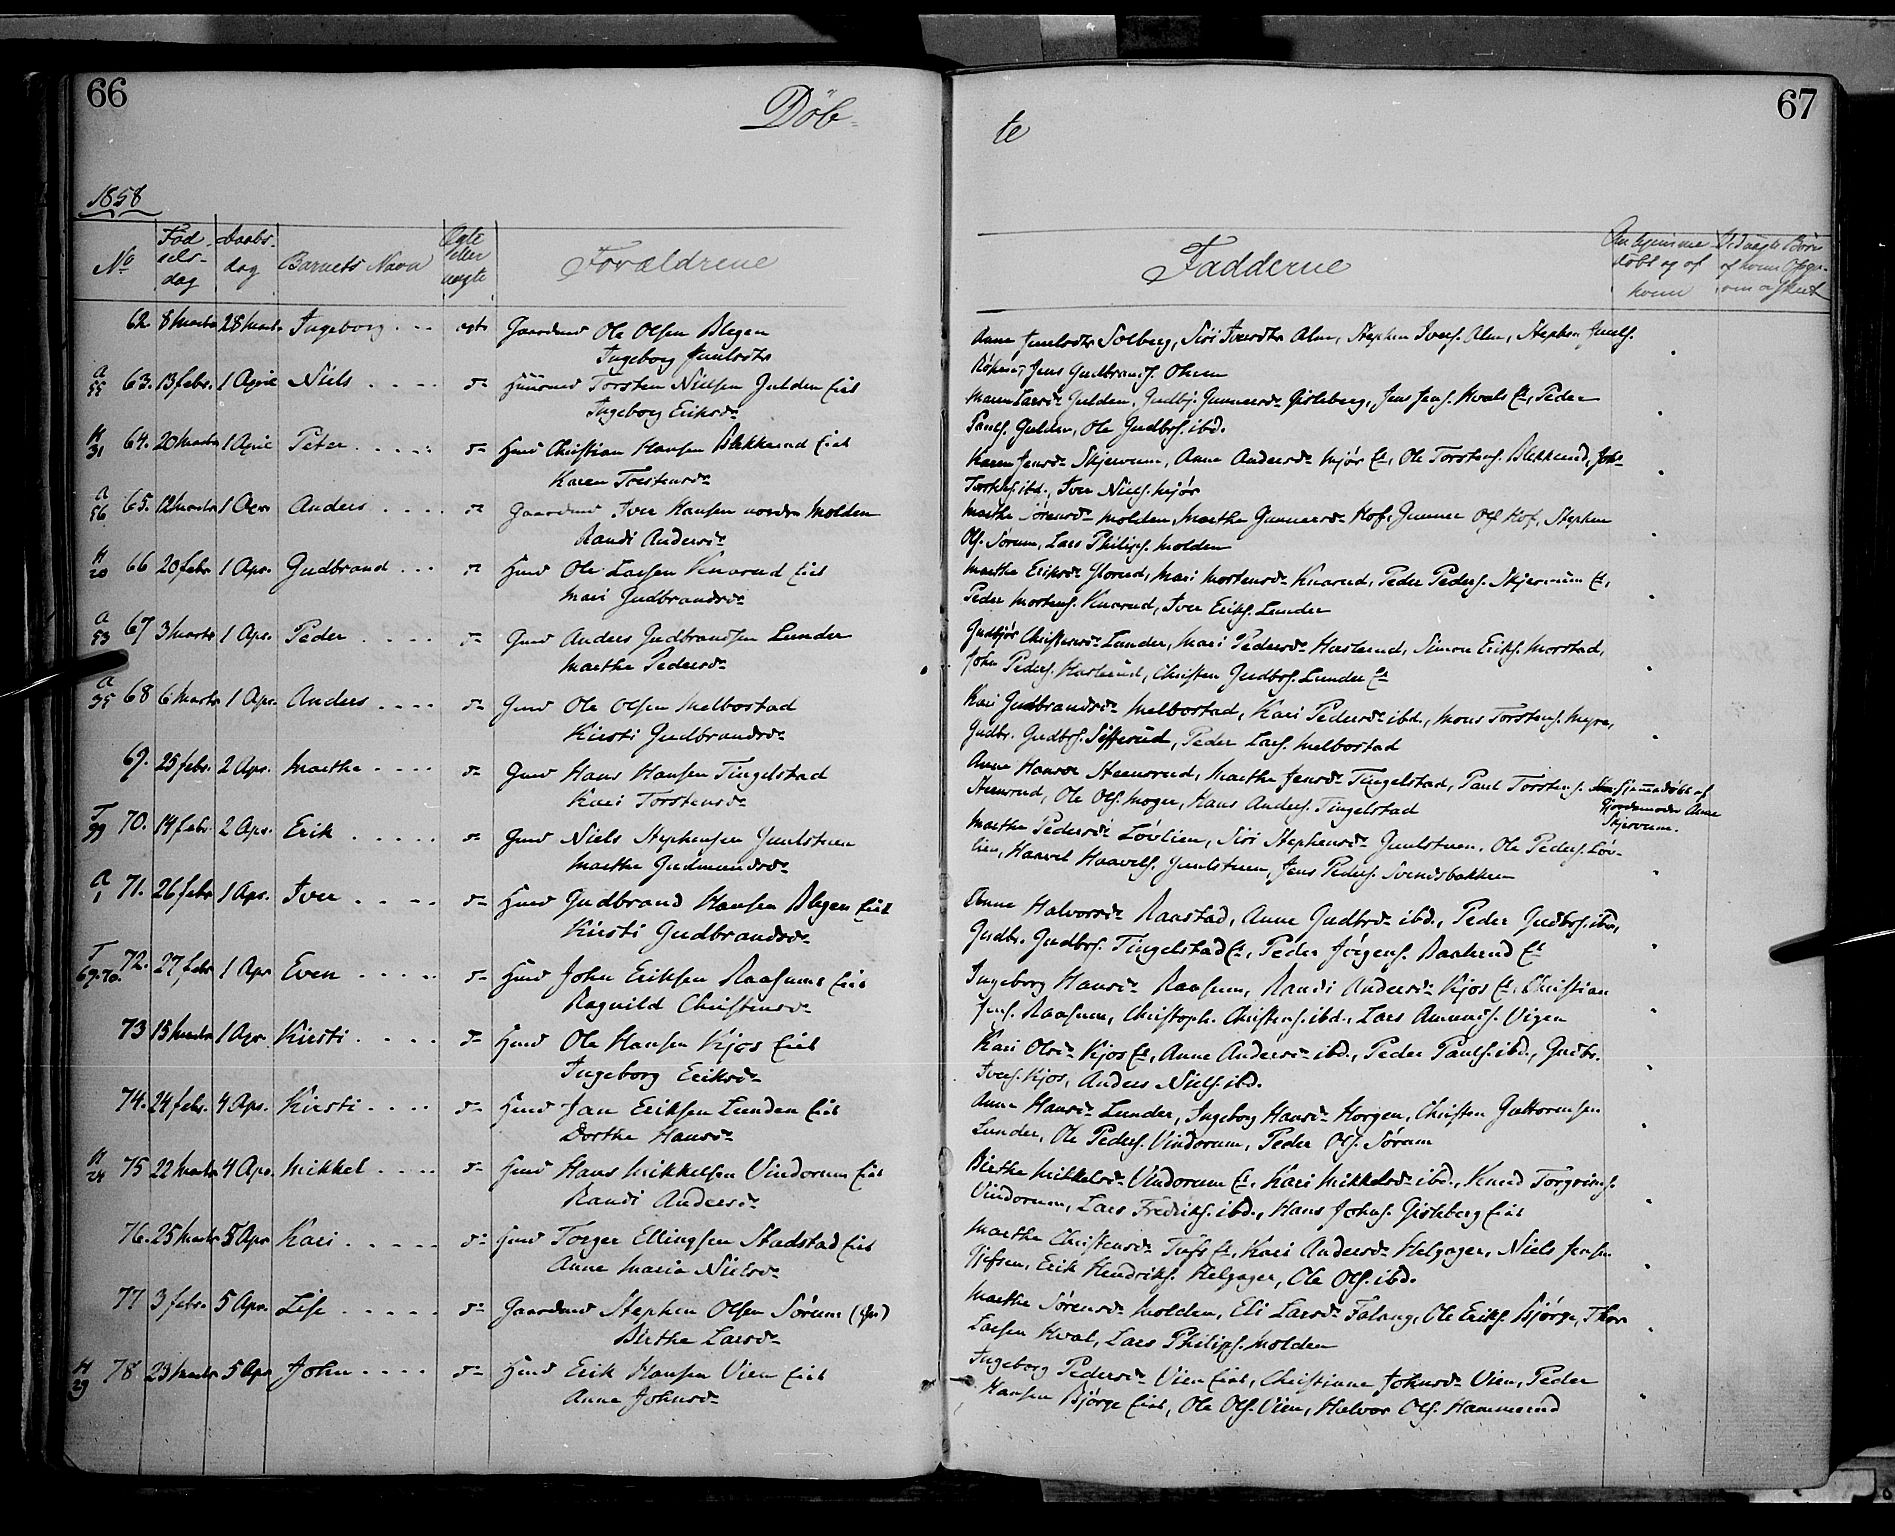 66
Döb-
1858
No
Fød-
sels-
dag
Daabs-
dag
Barnets Navn
Ægte
eller
uægte
Forældrene
62. 8 Marts 28 Marts Ingeborg . . . ægte Gaardmd Ole Olsen Blegen
Ingeborg
A 55 63. 13 febr. 1 April Niels . . . . do Huusmd Torsten Nielsen Gulden Eiet
Ingeborg Eriksdr
H 31 64. 20 Marts 1 April Peter . . . . . do Hmd Christian Hansen Blekkerud Eiet
Karen Torstensdr
A 56 65. 12 Marts 1 Apr. Anders . . . . do Gaardmd Iver Hansen nordre Molden
Randi Andersdr
H 20 66 20 febr. 1 Apr. Gudbrand . . . do Hmd Ole Larsen Knarud Eiet
Mari Gudbrandsdr
A 53 67 3 Marts 1 Apr. Peder . . . . do Gmd Anders Gudbrandsen Lunder
Marthe Pedersdr
A 35 68 6 Marts 1 Apr. Anders . . . . do Gmd Ole Olsen Melbostad
Kirsti Gudbrandsdr
69. 25 febr. 2 Apr. Marthe . . . . do Gmd Hans Hansen Tingelstad
Kari Torstensdr
T 99 70. 14 febr. 2 Apr. Erik . . . . . do Gmd Niels Stephensen Juulstuen
Marthe Gudmundsdr
A 1 71. 26 febr 1 Apr. Iver . . . . do Hmd Gudbrand Hansen Blegen Eiet
Kirsti Gudbrandsdr
T 69.70. 72. 27 febr 1 Apr Even . . . . . do Hmd John Eriksen Raasum Eiet
Ragnild Christensdr
73 15 Marts 1 Apr. Kirsti . . . . do Hmd Ole Hansen Kjos Eiet
Ingeborg Eriksdr
74. 24 febr. 4 Apr. Kirsti . . . . do Hmd Jan Eriksen Lunden Eiet
Dorthe Hansdr
H 24 75 22 Marts 4 Apr. Mikkel . . . . do Hmd Hans Mikkelsen Vindorum Eiet
Randi Andersdr
76. 25 Marts 5 Apr Kari . . . . . do Hmd Torger Ellingsen Stadstad Eiet
Anne Maria Nielsdr
77 3 febr. 5 Apr. Lise . . . . . do Gaardmd Stephen Olsen Sørum
Birthe Larsdr
H 29 78. 23 Marts 5 Apr John . . . . do Hmd Erik Hansen Vien Eiet
Anne Johnsdr
67
te
Fadderne
Om hjemme
døbt og af
hvem
Anne Solberg, Siri Iversdtr Alm, Stephen Ivers. Alm, Stephen
Jens Gudbrands. Ohren
Maren Larsdr Gulden, Gudbj. Gunnersdr Gisleberg, Jens Jens. Kvale Et, Peder
Pauls. Gulden, Ole Gudbrs. ibd.
Karen Jensdr Skjervum, Anne Andersdr Mjør Et, Ole Torstens. Blekkerud, Joh-
Torstens. ibd., Iver Niels. Mjør
Marthe Sørensdr Molden, Marthe Gunnersdr Hof, Gunner Ols Hof, Stephen
Ols. Sørum, Lars Philips. Molden
Marthe Eriksdr Glorud, Mari Mortensdr Knarud, Peder Peders. Skjervum Et,
Peder Mortens. Knarud, Iver Eriks. Lunder
Gudbjør Christensdr Lunder, Mari Pedersdr Haslerud, Simon Eriks. Morstad,
John Peders. Haslerud, Christen Gudbrs. Lunder Et
Kari Gudbrandsdr Melbostad, Kari Pedersdr ibd., Mons Torstens. Myre,
Gudbr. Gudbrs. Sifferud, Peder Lars. Melbostad
Anne Hansdr Steensrud, Marthe Jensdr Tingelstad, Paul Torstens.
Steensrud, Ole Ols. Moger, Hans Anders. Tingelstad
Hjemmedøbt af
Gjordemoder Anne
Skjervum.
Marthe Pedersdr Løvlien, Siri Stephensdr Juulstuen, Ole Peders. Løv-
lien, Haavel Haavels. Juulstuen, Jens Peders. Svendsbakken
Anne Halvorsdr Raastad, Anne Gudbrsdr ibd., Peder Gudbrs. ibd.,
Gudbr. Gudbrs. Tingelstad Et, Peder Jørgens. Baalerud Et
Ingeborg Hansdr Raasum, Randi Andersdr Kjos Et, Christian
Jens. Raasum, Christoph. Christens. ibd., Lars Amunds. Vigen
Kari Olsdr Kjos Et, Anne Andersdr ibd., Peder Pauls. ibd., Gudbr.
Ivers. Kjos, Anders Niels. ibd.
Anne Hansdr Lunder, Ingeborg Hansdr Horgen, Christen Guttormsen
Lunder, Ole Peders. Vindorum, Peder Ols. Sørum
Birthe Mikkelsdr Vindorum Et, Kari Mikkelsdr ibd., Knud Torgrims.
Vindorum, Lars Fredriks. ibd., Hans Johns. Gisleberg Eiet
Marthe Christensdr Tufs Et, Kari Andersdr Helgager, Niels Jensen
Gjefsen, Erik Hendriks. Helgager, Ole Ols. ibd.
Marthe Sørensdr Molden, Eli Larsdr Falang, Ole Eriks. Bjørge, Thor
Larsen Kval, Lars Philips. Molden
Ingeborg Pedersdr Vien Eiet, Christianne Johnsdr Vien, Peder
Hansen Bjørge Eiet, Ole Ols. Vien, Halvor Ols. Hammerud